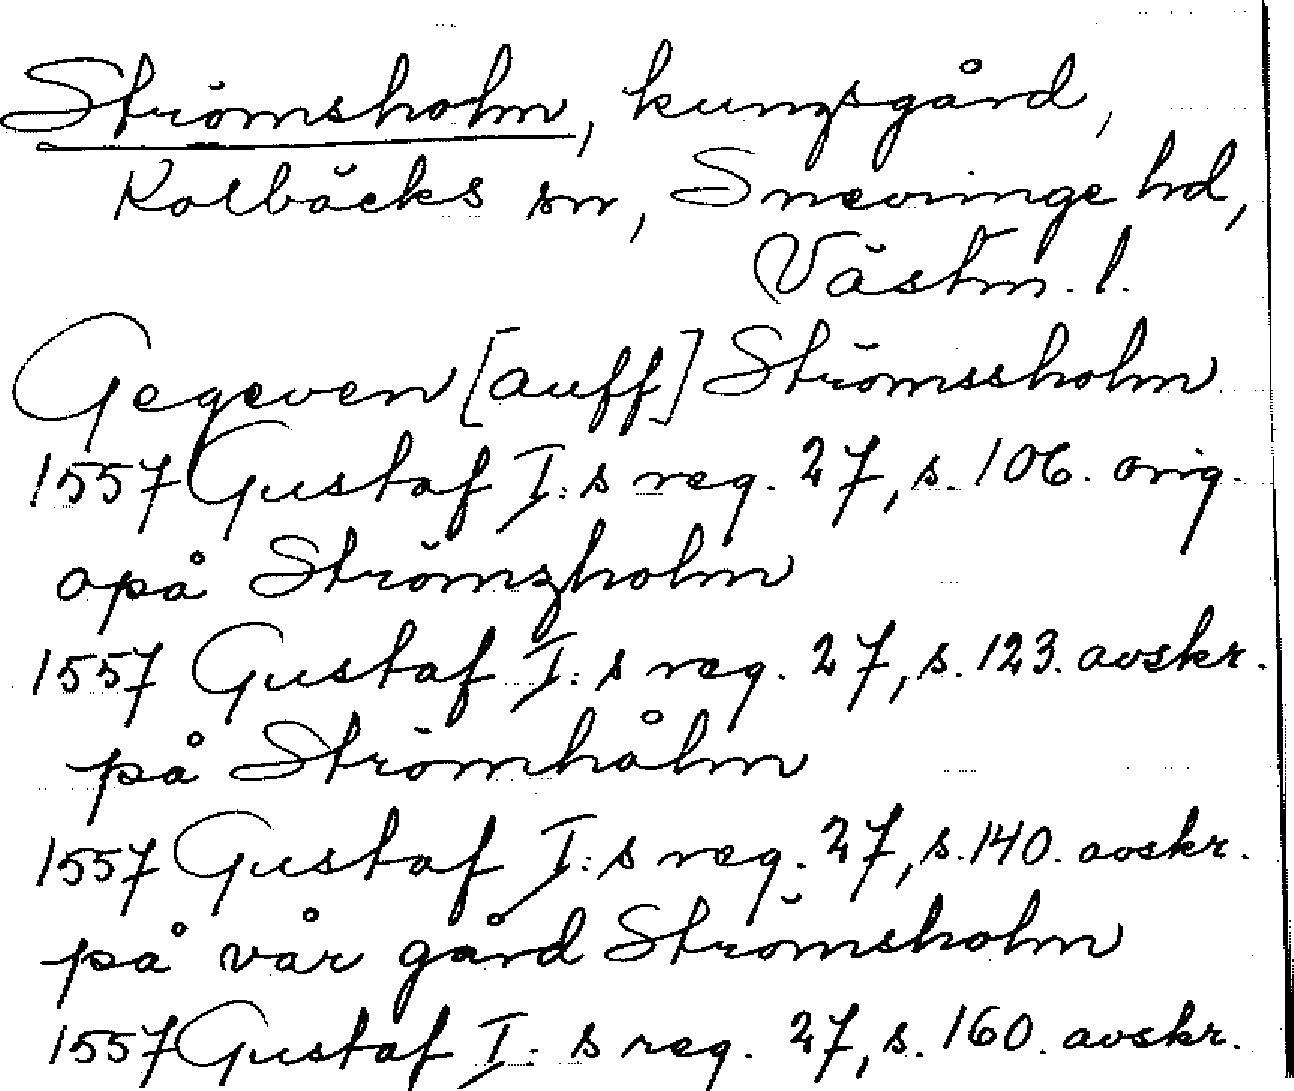 Strömsholm, kungsgård,
Kolbäcks sn, Snevringe hd,
Västm. l.
Gegeven [auff] Strömssholm
1557 Gustaf I:s reg. 27, s. 106. orig.
opå Strömzholm
1557 Gustaf I:s reg. 27, s. 123. avskr.
på Strömhålm
1557 Gustaf I:s reg. 27, s. 140. avskr.
på vår gård Strömsholm
1557 Gustaf I:s reg. 27, s. 160. avskr.